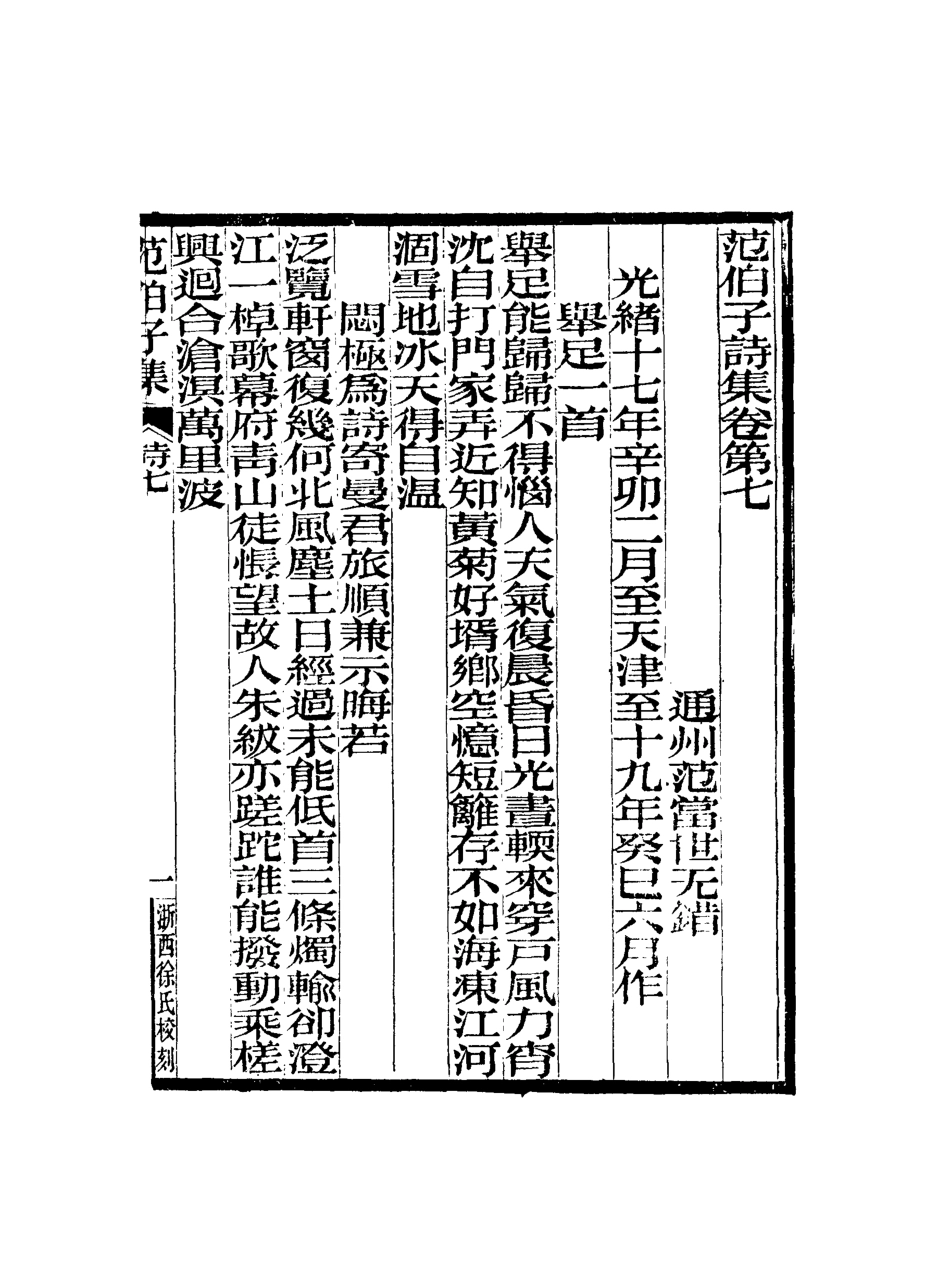 范伯子詩集卷第七
通州范當世无錯
光緒十七年辛卯二月至天津至十九年癸巳六月作
舉足一首
舉足能歸歸不得惱人天氣復晨昏日光晝輭來穿戸風力宵
沈自打門家弄近知黃菊好壻鄉空憶短籬存不如海凍江河
涸雪地冰天得自温
悶極爲詩寄曼君旅順兼示晦若
泛覽軒窗復幾何北風塵土日經過未能低首三條燭輸卻澄
江一棹歌幕府靑山徒悵望故人朱紱亦蹉跎誰能撥動乘槎
興迴合滄溟萬里波
范伯子集 詩七 一 浙西徐氏校刻